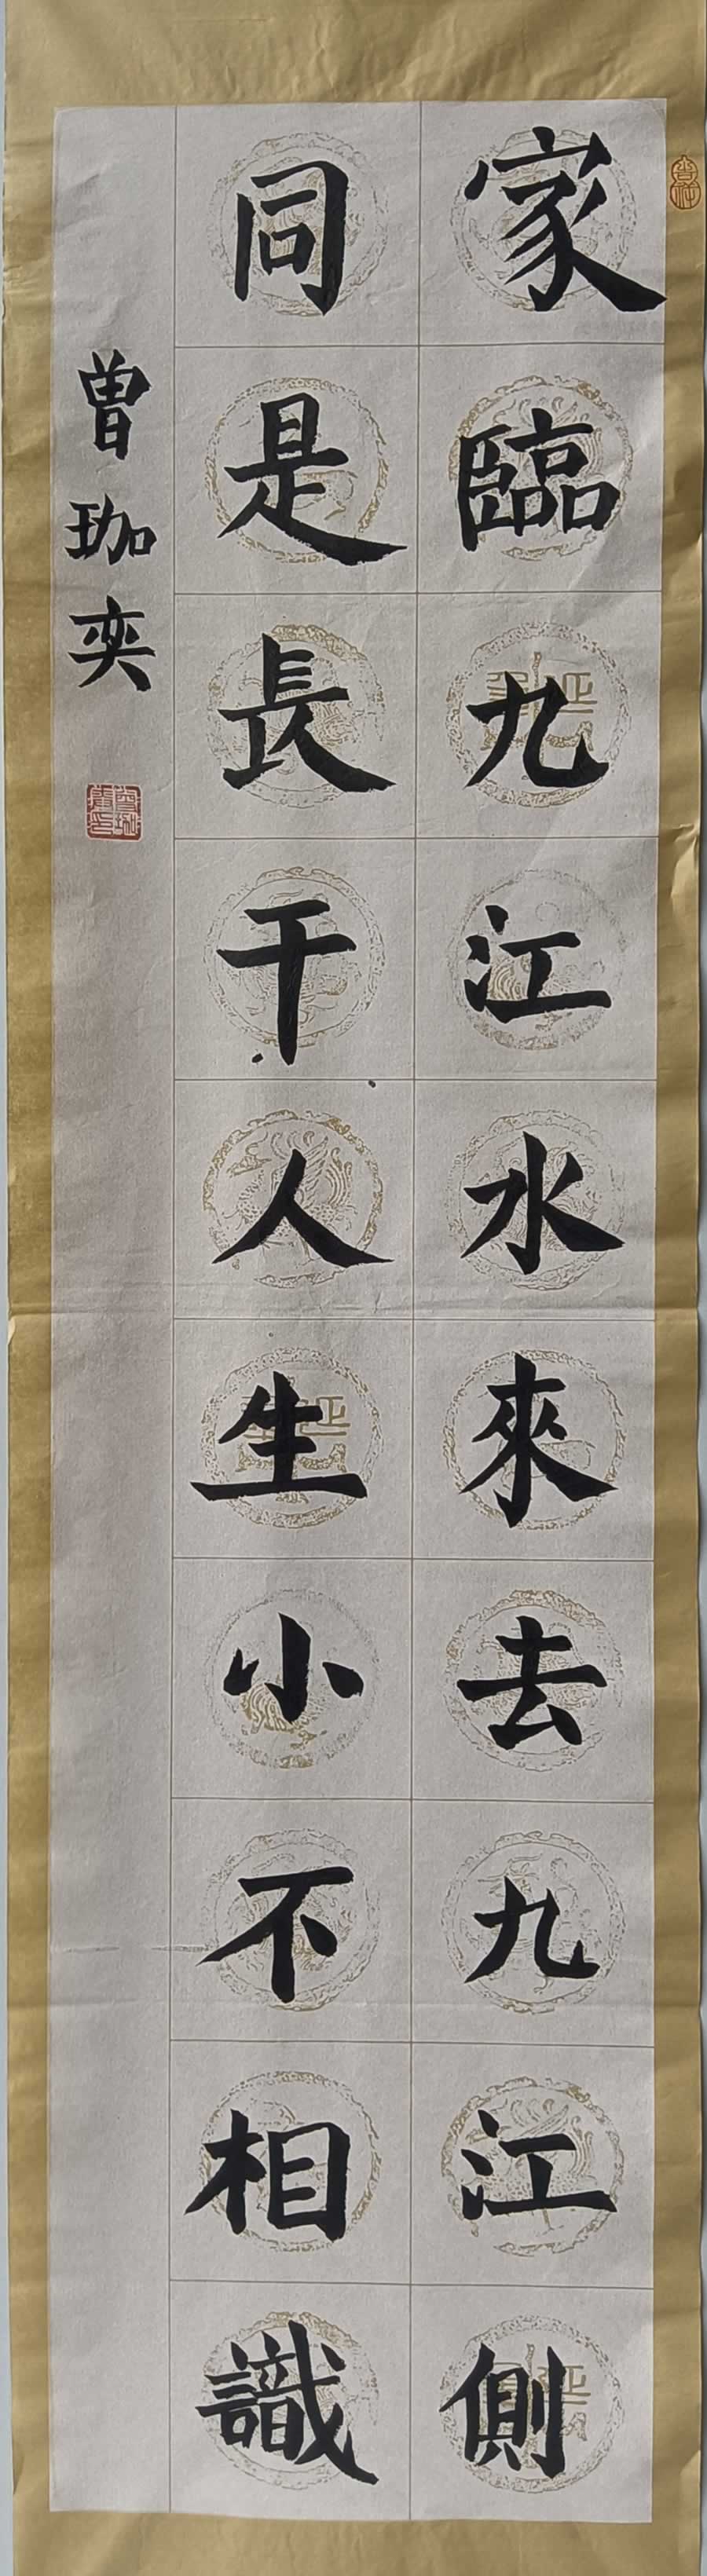 家臨九江水來去九江側
同是長干人生小不相識
曾珈奕